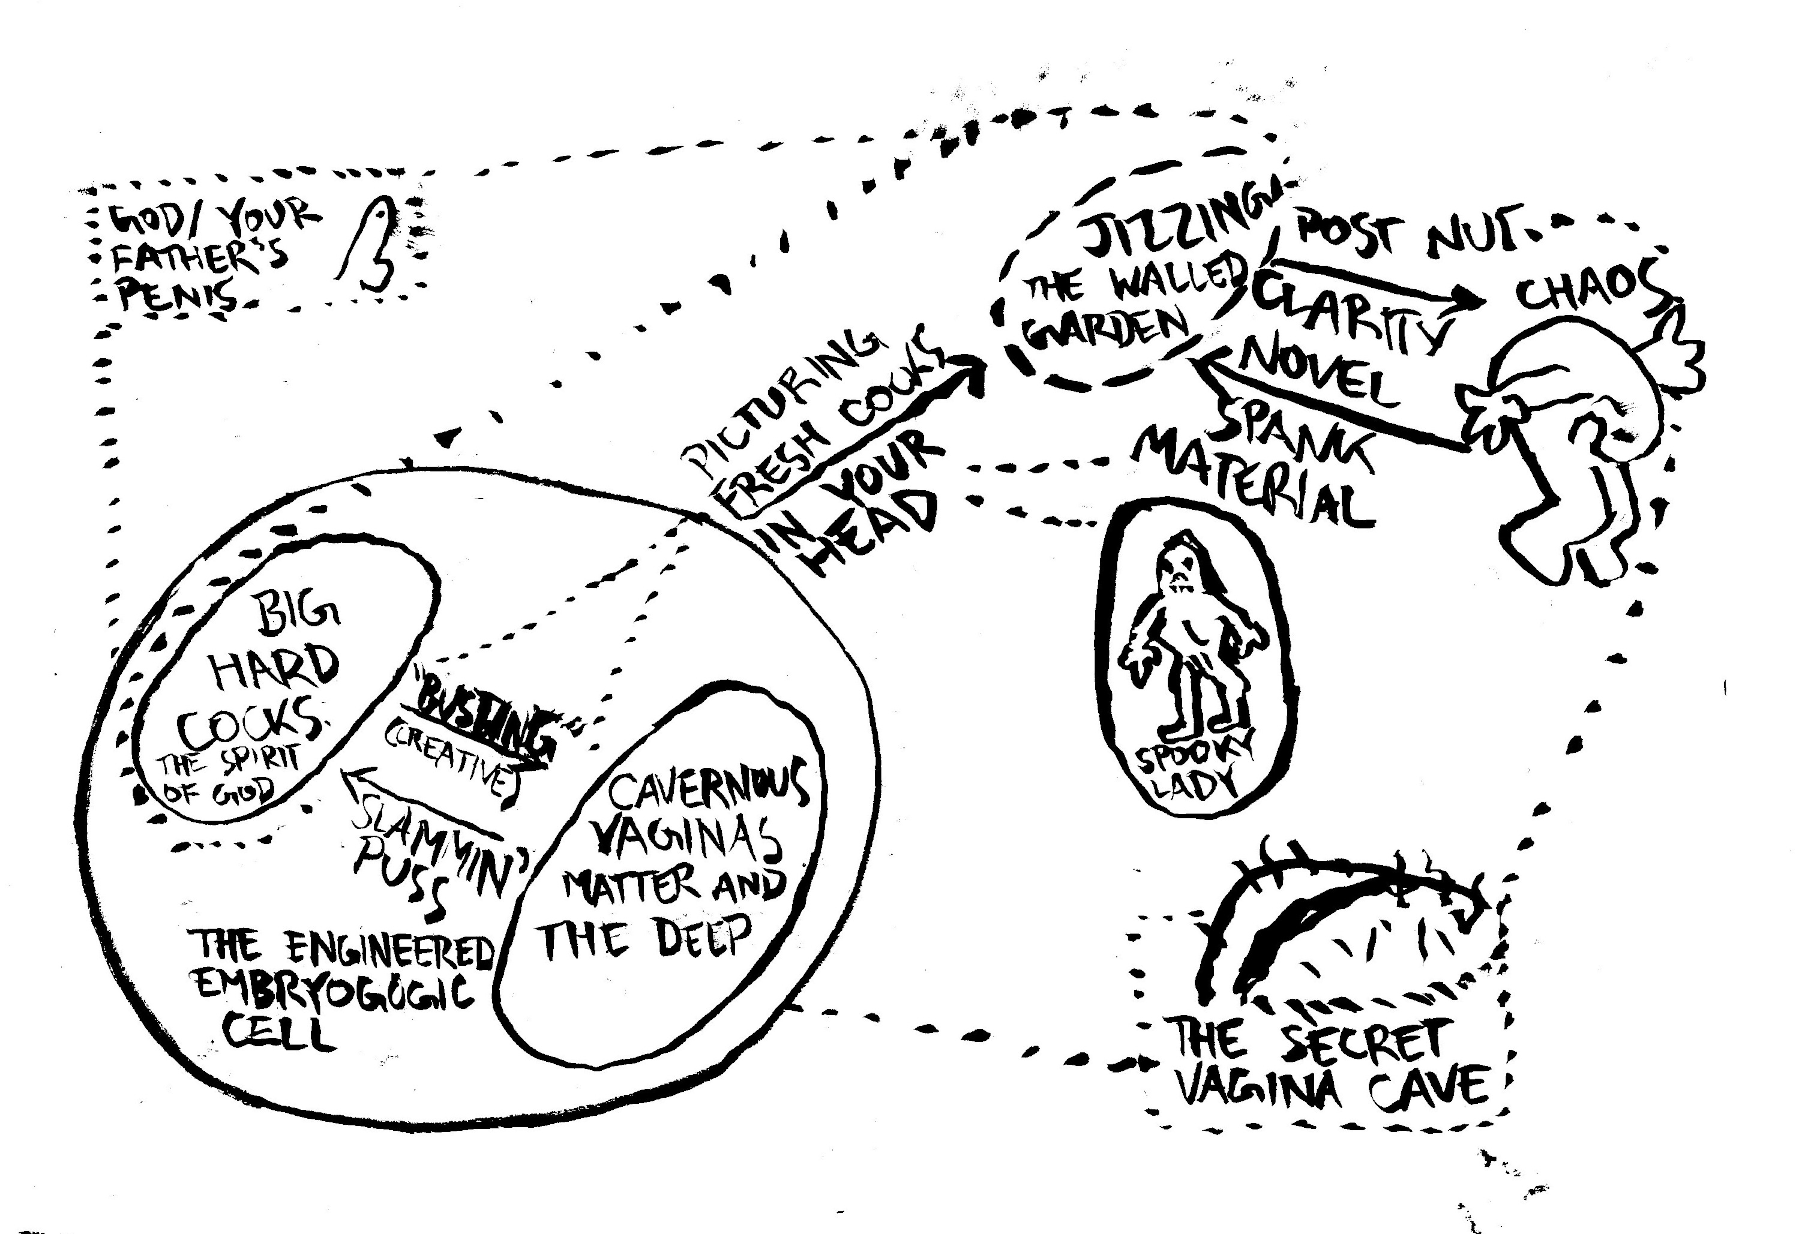 GOD/YOUR
FATHER'S
PENIS
JIZZING
THE WALLED
GARDEN
POST NUT
CLARITY
CHAOS
NOVEL
SPANK
MATERIAL
PICTURING
FRESH COCKS
IN YOUR
HEAD
BIG
HARD
COCKS.
THE SPIRIT
OF GOD
"BUSTING"
(CREATIVE)
SLAMMIN'
PUSS
CAVERNOUS
VAGINAS
MATTER AND
THE DEEP
THE ENGINEERED
EMBRYOGOGIC
CELL
SPOOKY
LADY
THE SECRET
VAGINA CAVE